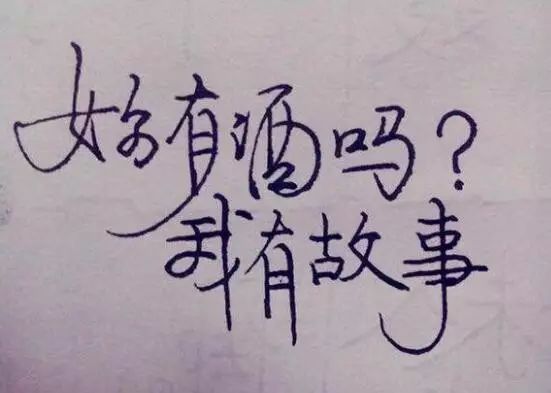 妳有酒吗?
我有故事